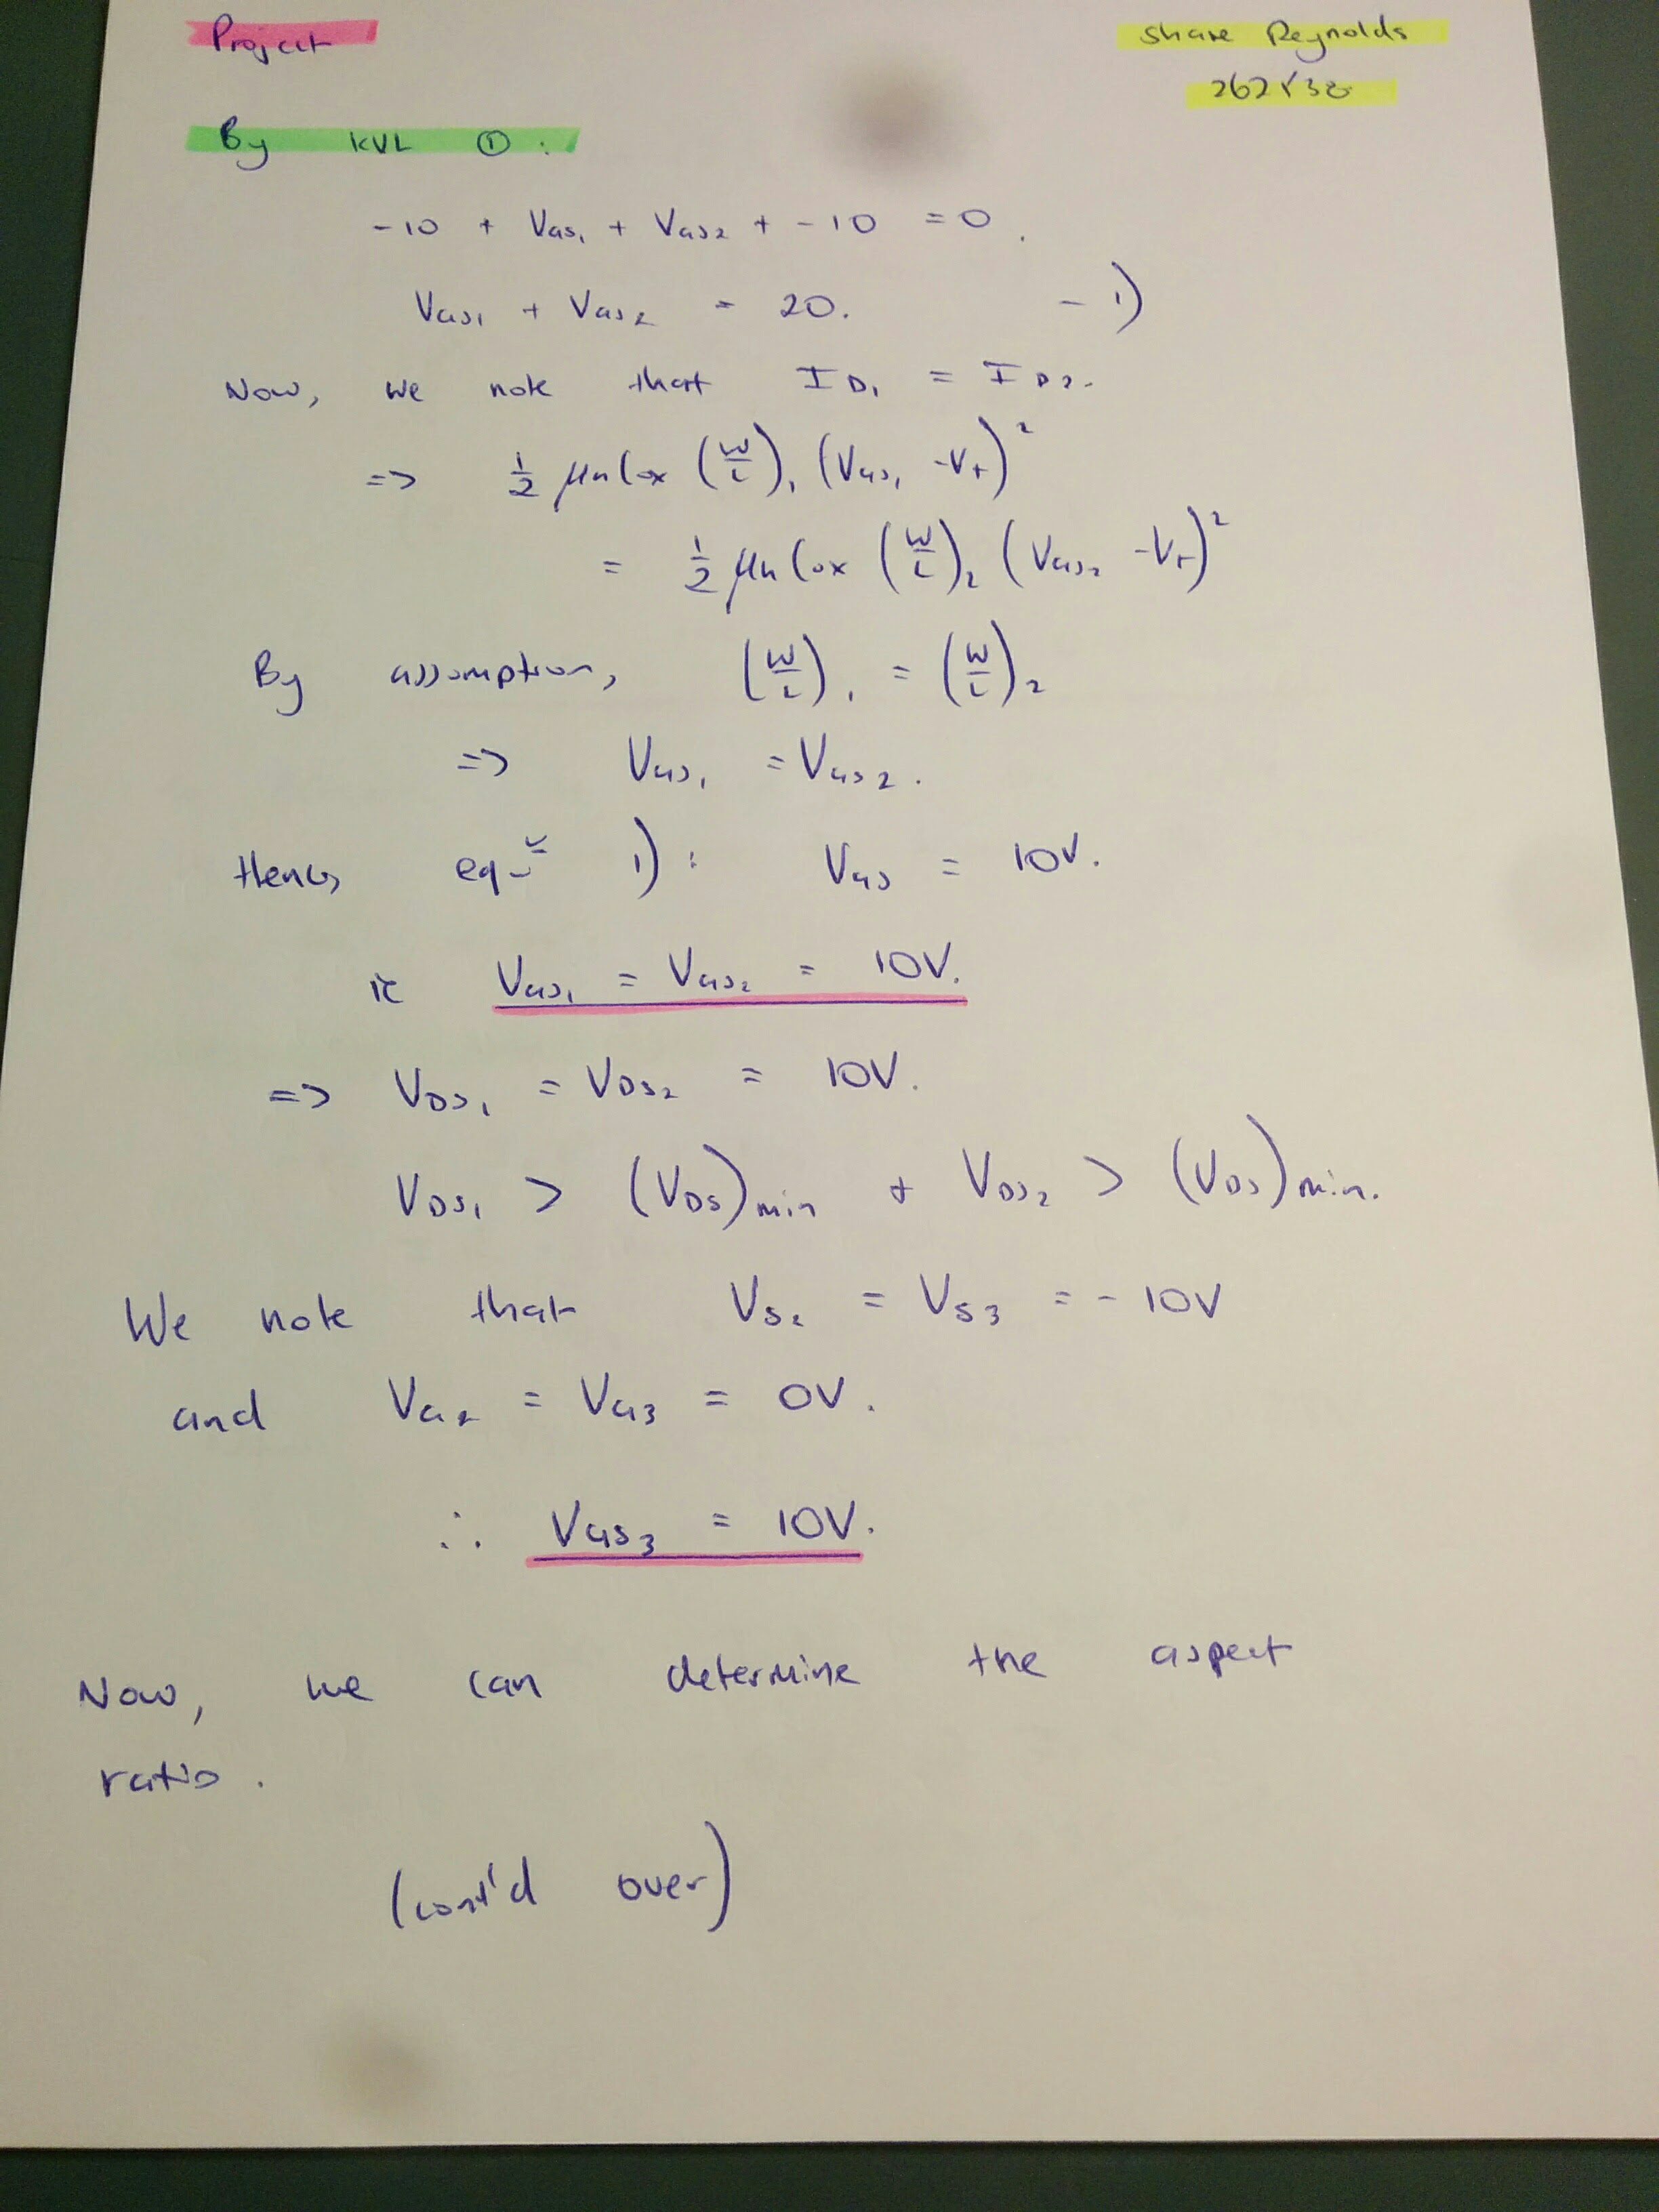 Project
Shane Reynolds
262538
By KVL ①:
-10 + VGS1 + VGS2 + -10 = 0.
VGS1 + VGS2 = 20. - 1)
Now, we note that ID1 = ID2.
=> 1/2 μnCox (W/L)1 (VGS1 - VT)²
= 1/2 μnCox (W/L)2 (VGS2 - VT)²
By assumption, (W/L)1 = (W/L)2
=> VGS1 = VGS2.
Hence, eqn 1): VGS = 10V.
ie VGS1 = VGS2 = 10V.
=> VDS1 = VDS2 = 10V.
VDS1 > (VDS)min + VDS2 > (VDS)min.
We note that VS2 = VS3 = -10V
and VG2 = VG3 = 0V.
∴ VGS3 = 10V.
Now, we can determine the aspect
ratio.
(cont'd over)